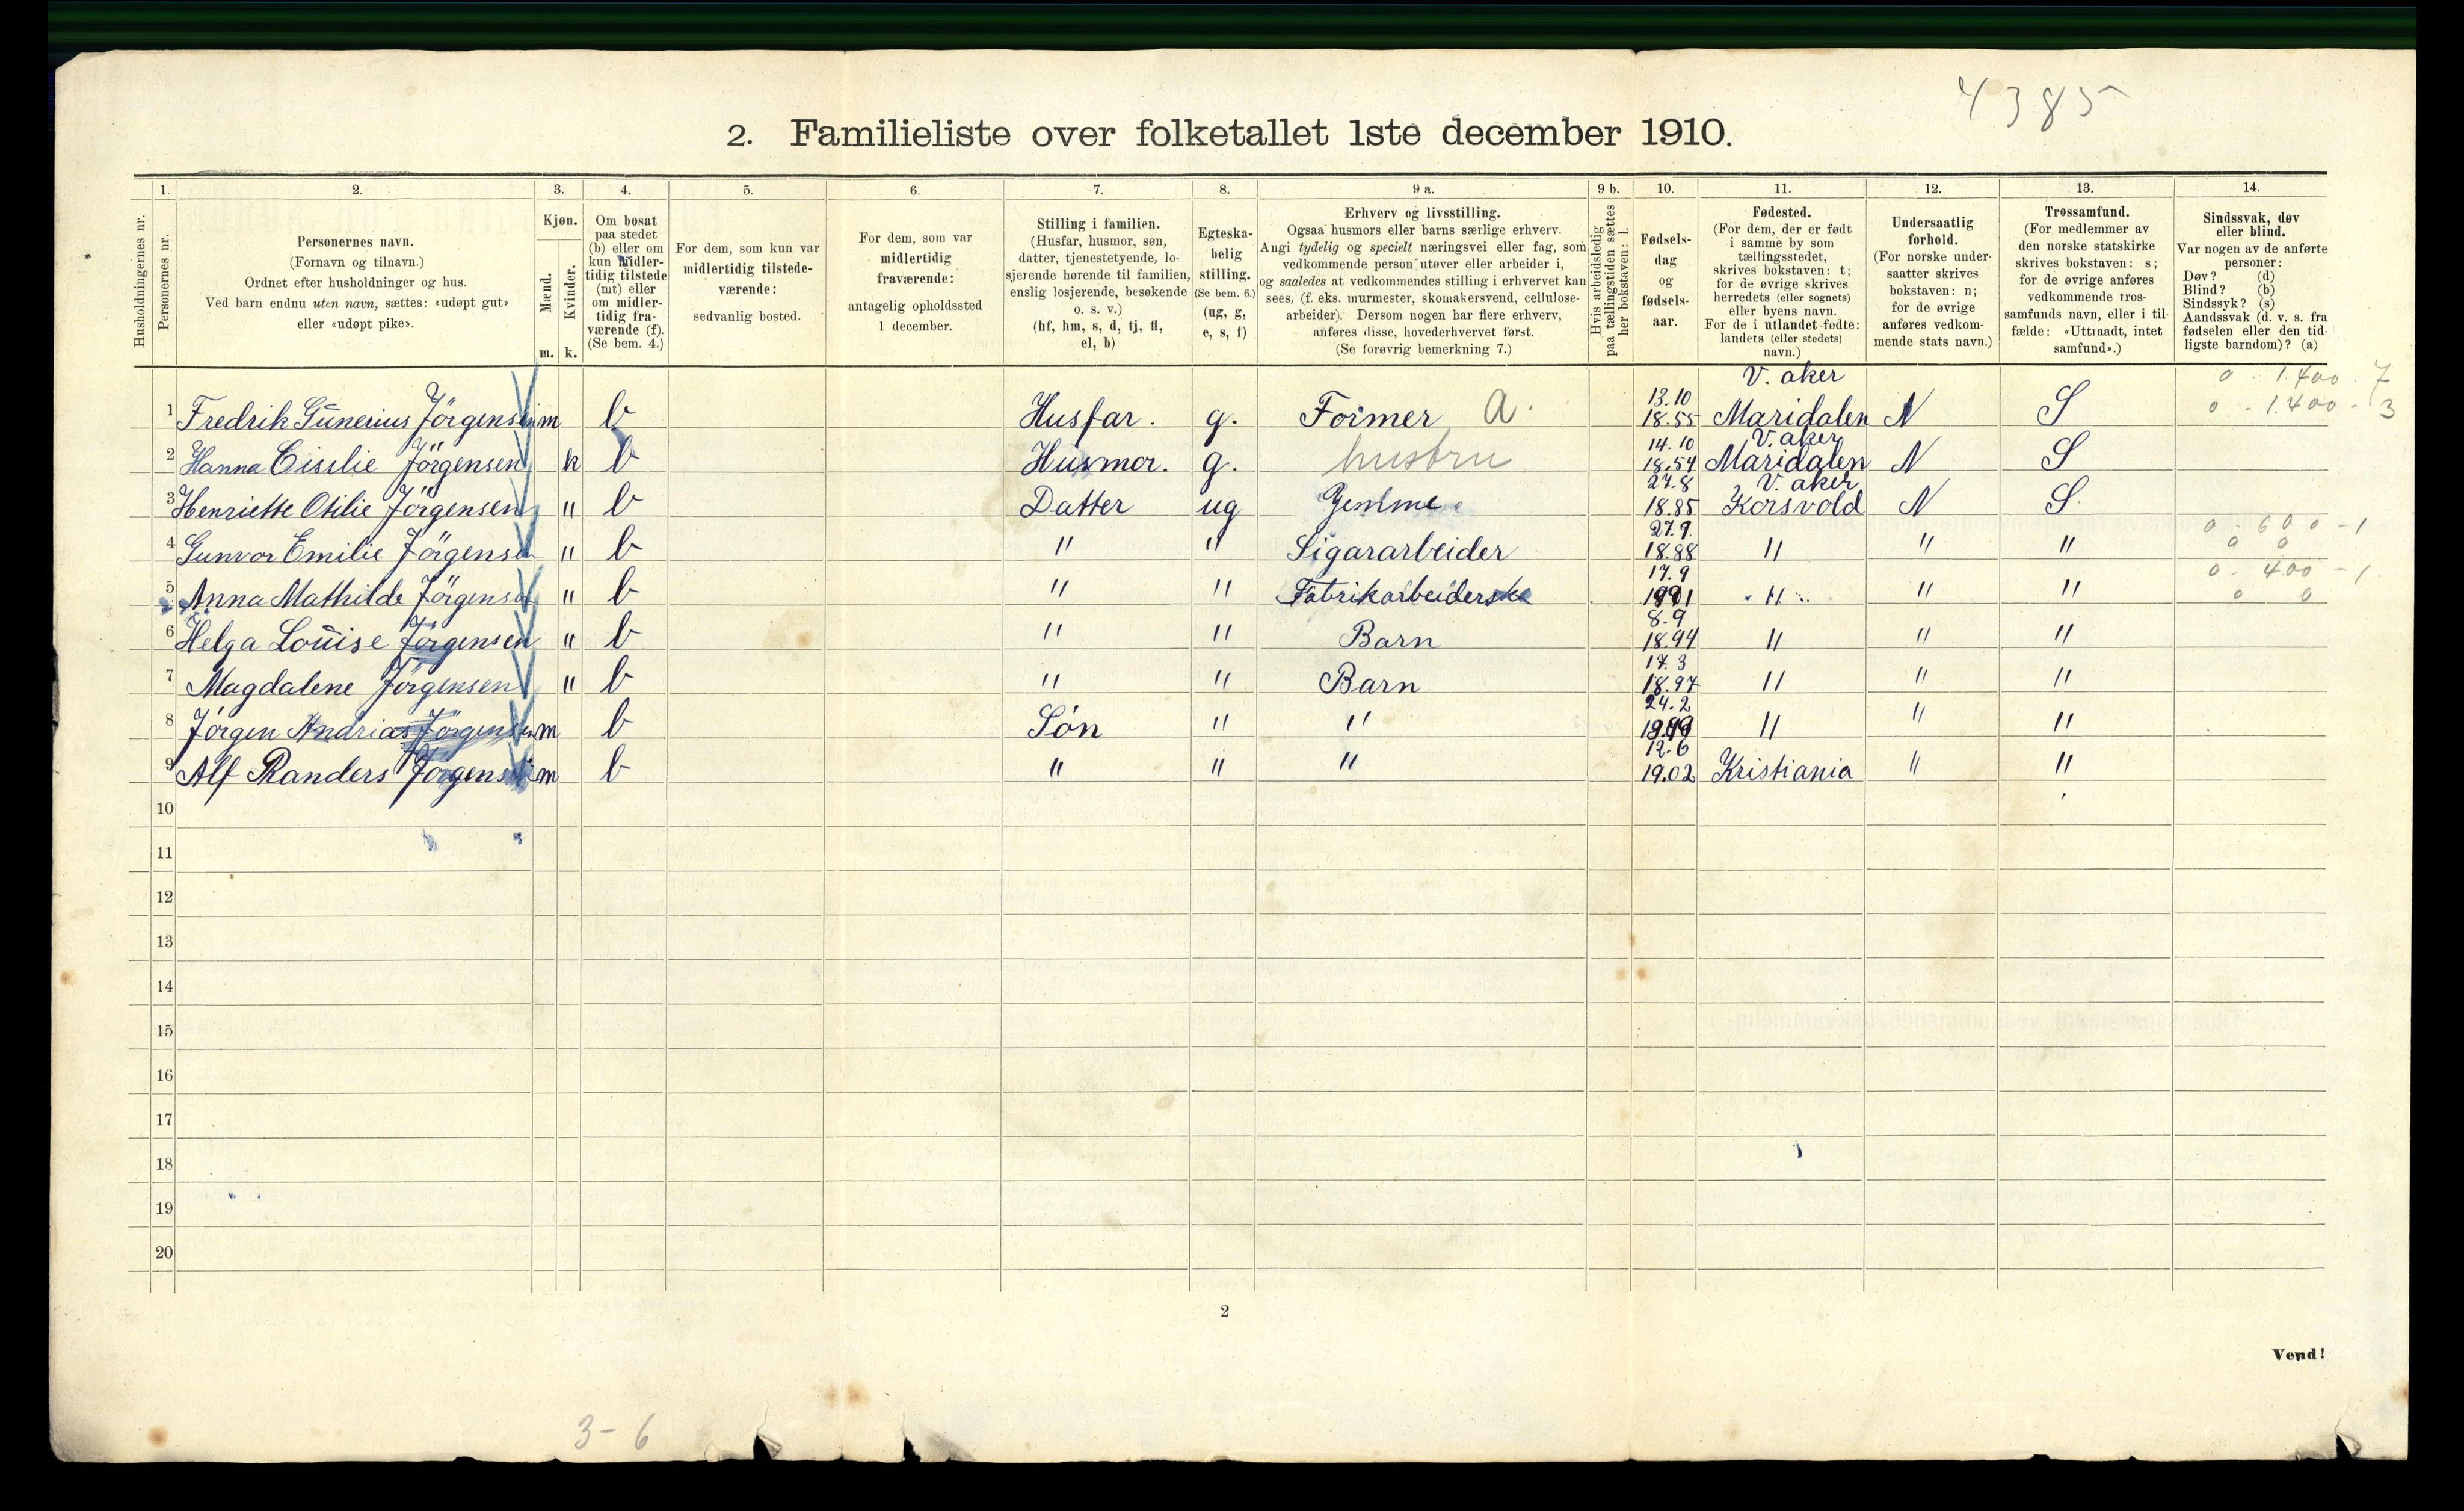 4385
2. Familieliste over folketallet 1ste december 1910.
1. 2. 3. 4. 5. 6. 7. 8. 9 a. 9 b. 10. 11. 12. 13. 14.
Husholdningernes nr.
Personernes nr.
Personernes navn.
(Fornavn og tilnavn.)
Ordnet efter husholdninger og hus.
Ved barn endnu uten navn, sættes: «udøpt gut»
eller «udøpt pike».
Kjøn.
Mænd.
Kvinder.
m. k.
Om bosat
paa stedet
(b) eller om
kun midler-
tidig tilstede
(mt) eller
om midler-
tidig fra-
værende (f).
(Se bem. 4.)
For dem, som kun var
midlertidig tilstede-
værende:
sedvanlig bosted.
For dem, som var
midlertidig
fraværende:
antagelig opholdssted
1 december.
Stilling i familien.
(Husfar, husmor, søn,
datter, tjenestetyende, lo-
sjerende hørende til familien,
enslig losjerende, besøkende
o. s. v.)
(hf, hm, s, d, tj, fl,
el, b)
Egteska-
belig
stilling.
(Se bem. 6.)
(ug, g,
e, s, f)
Erhverv og livsstilling.
Ogsaa husmors eller barns særlige erhverv.
Angi tydelig og specielt næringsvei eller fag, som
vedkommende person utøver eller arbeider i,
og saaledes at vedkommendes stilling i erhvervet kan
sees, (f. eks. murmester, skomakersvend, cellulose-
arbeider). Dersom nogen har flere erhverv,
anføres disse, hovederhvervet først.
(Se forøvrig bemerkning 7.)
Hvis arbeidsledig
paa tællingstiden sættes
her bokstaven: l.
Fødsels-
dag
og
fødsels-
aar.
Fødested.
(For dem, der er født
i samme by som
tællingsstedet,
skrives bokstaven: t;
for de øvrige skrives
herredets (eller sognets)
eller byens navn.
For de i utlandet fødte:
landets (eller stedets)
navn.)
Undersaatlig
forhold.
(For norske under-
saatter skrives
bokstaven: n;
for de øvrige
anføres vedkom-
mende stats navn.)
Trossamfund.
(For medlemmer av
den norske statskirke
skrives bokstaven: s;
for de øvrige anføres
vedkommende tros-
samfunds navn, eller i til-
fælde: «Uttraadt, intet
samfund».)
Sindssvak, døv
eller blind.
Var nogen av de anførte
personer:
Døv? (d)
Blind? (b)
Sindssyk? (s)
Aandssvak (d. v. s. fra
fødselen eller den tid-
ligste barndom)? (a)
V. aker 0 - 1.400 - 7
1 Fredrik Gunerius Jörgensen m b Husfar. g. Former a. 13.10 18.55 Maridalen N S 0 - 1.400 - 3
V. aker
2 Hanna Cisilie Jörgensen k b Husmor. g. hustru 14.10 18.54 Maridalen N S
V. aker
3 Henriette Otilie Jörgensen " b Datter ug Hjemme 27.8 18.85 Korsvold N S.
0 - 600 - 1
4 Gunvor Emilie Jörgensen " b " " Sigararbeider 27.9. 18.88 " " " 0 0
0 - 400 - 1
5 Anna Mathilde Jörgensen " b " " Fabrikarbeiderske 17.9 1891 " " " 0 0
6 Helga Louise Jörgensen " b " " Barn 8.9 18.94 " " "
7 Magdalene Jörgensen " b " " Barn 17.3 18.97 " " "
8 Jörgen Andrias Jörgensen m b Sön " " 24.2 " " "
9 Alf Randers Jörgensen m b " " " 12.6 19.02 Kristiania " "
10
11
12
13
14
15
16
17
18
19
20
2
Vend!
3-6